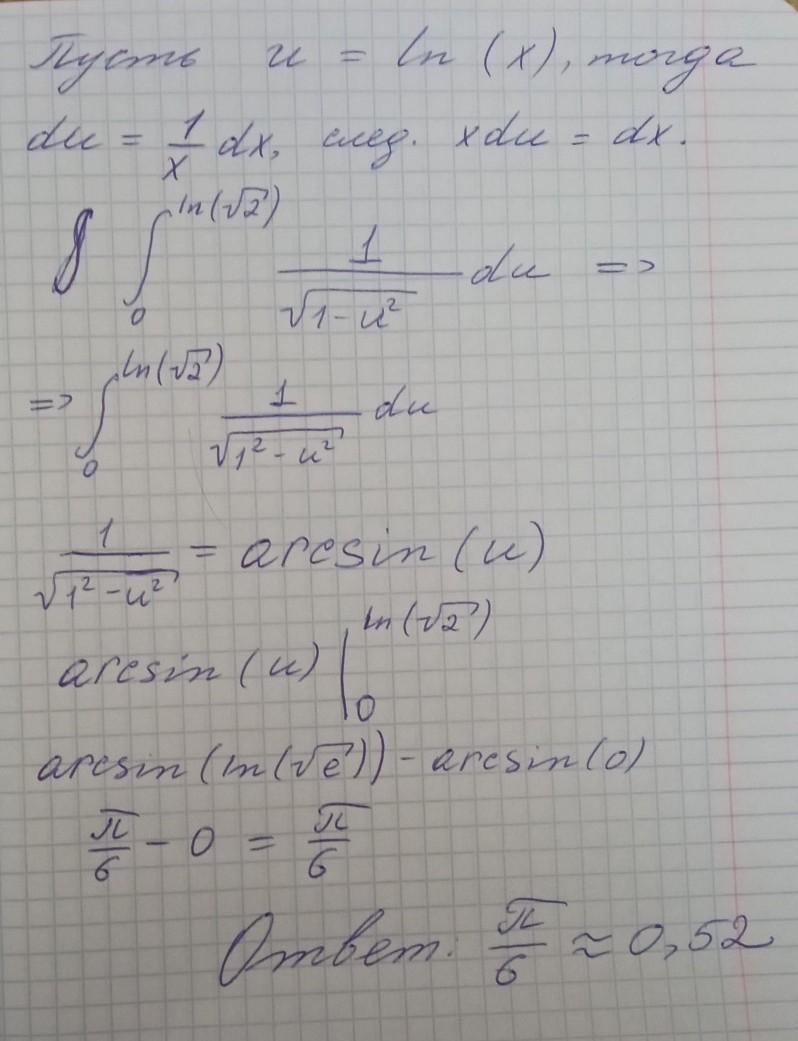 Пусть u = ln (x), тогда
du = 1/x dx, след. xdu = dx.
∫ ∫₀^ln(√2) 1/√(1-u²) du =>
=> ∫₀^ln(√2) 1/√(1²-u²) du
1/√(1²-u²) = arcsin (u)
arcsin (u) |₀^ln(√2)
arcsin (ln(√e)) - arcsin (0)
π/6 - 0 = π/6
Ответ: π/6 ≈ 0,52